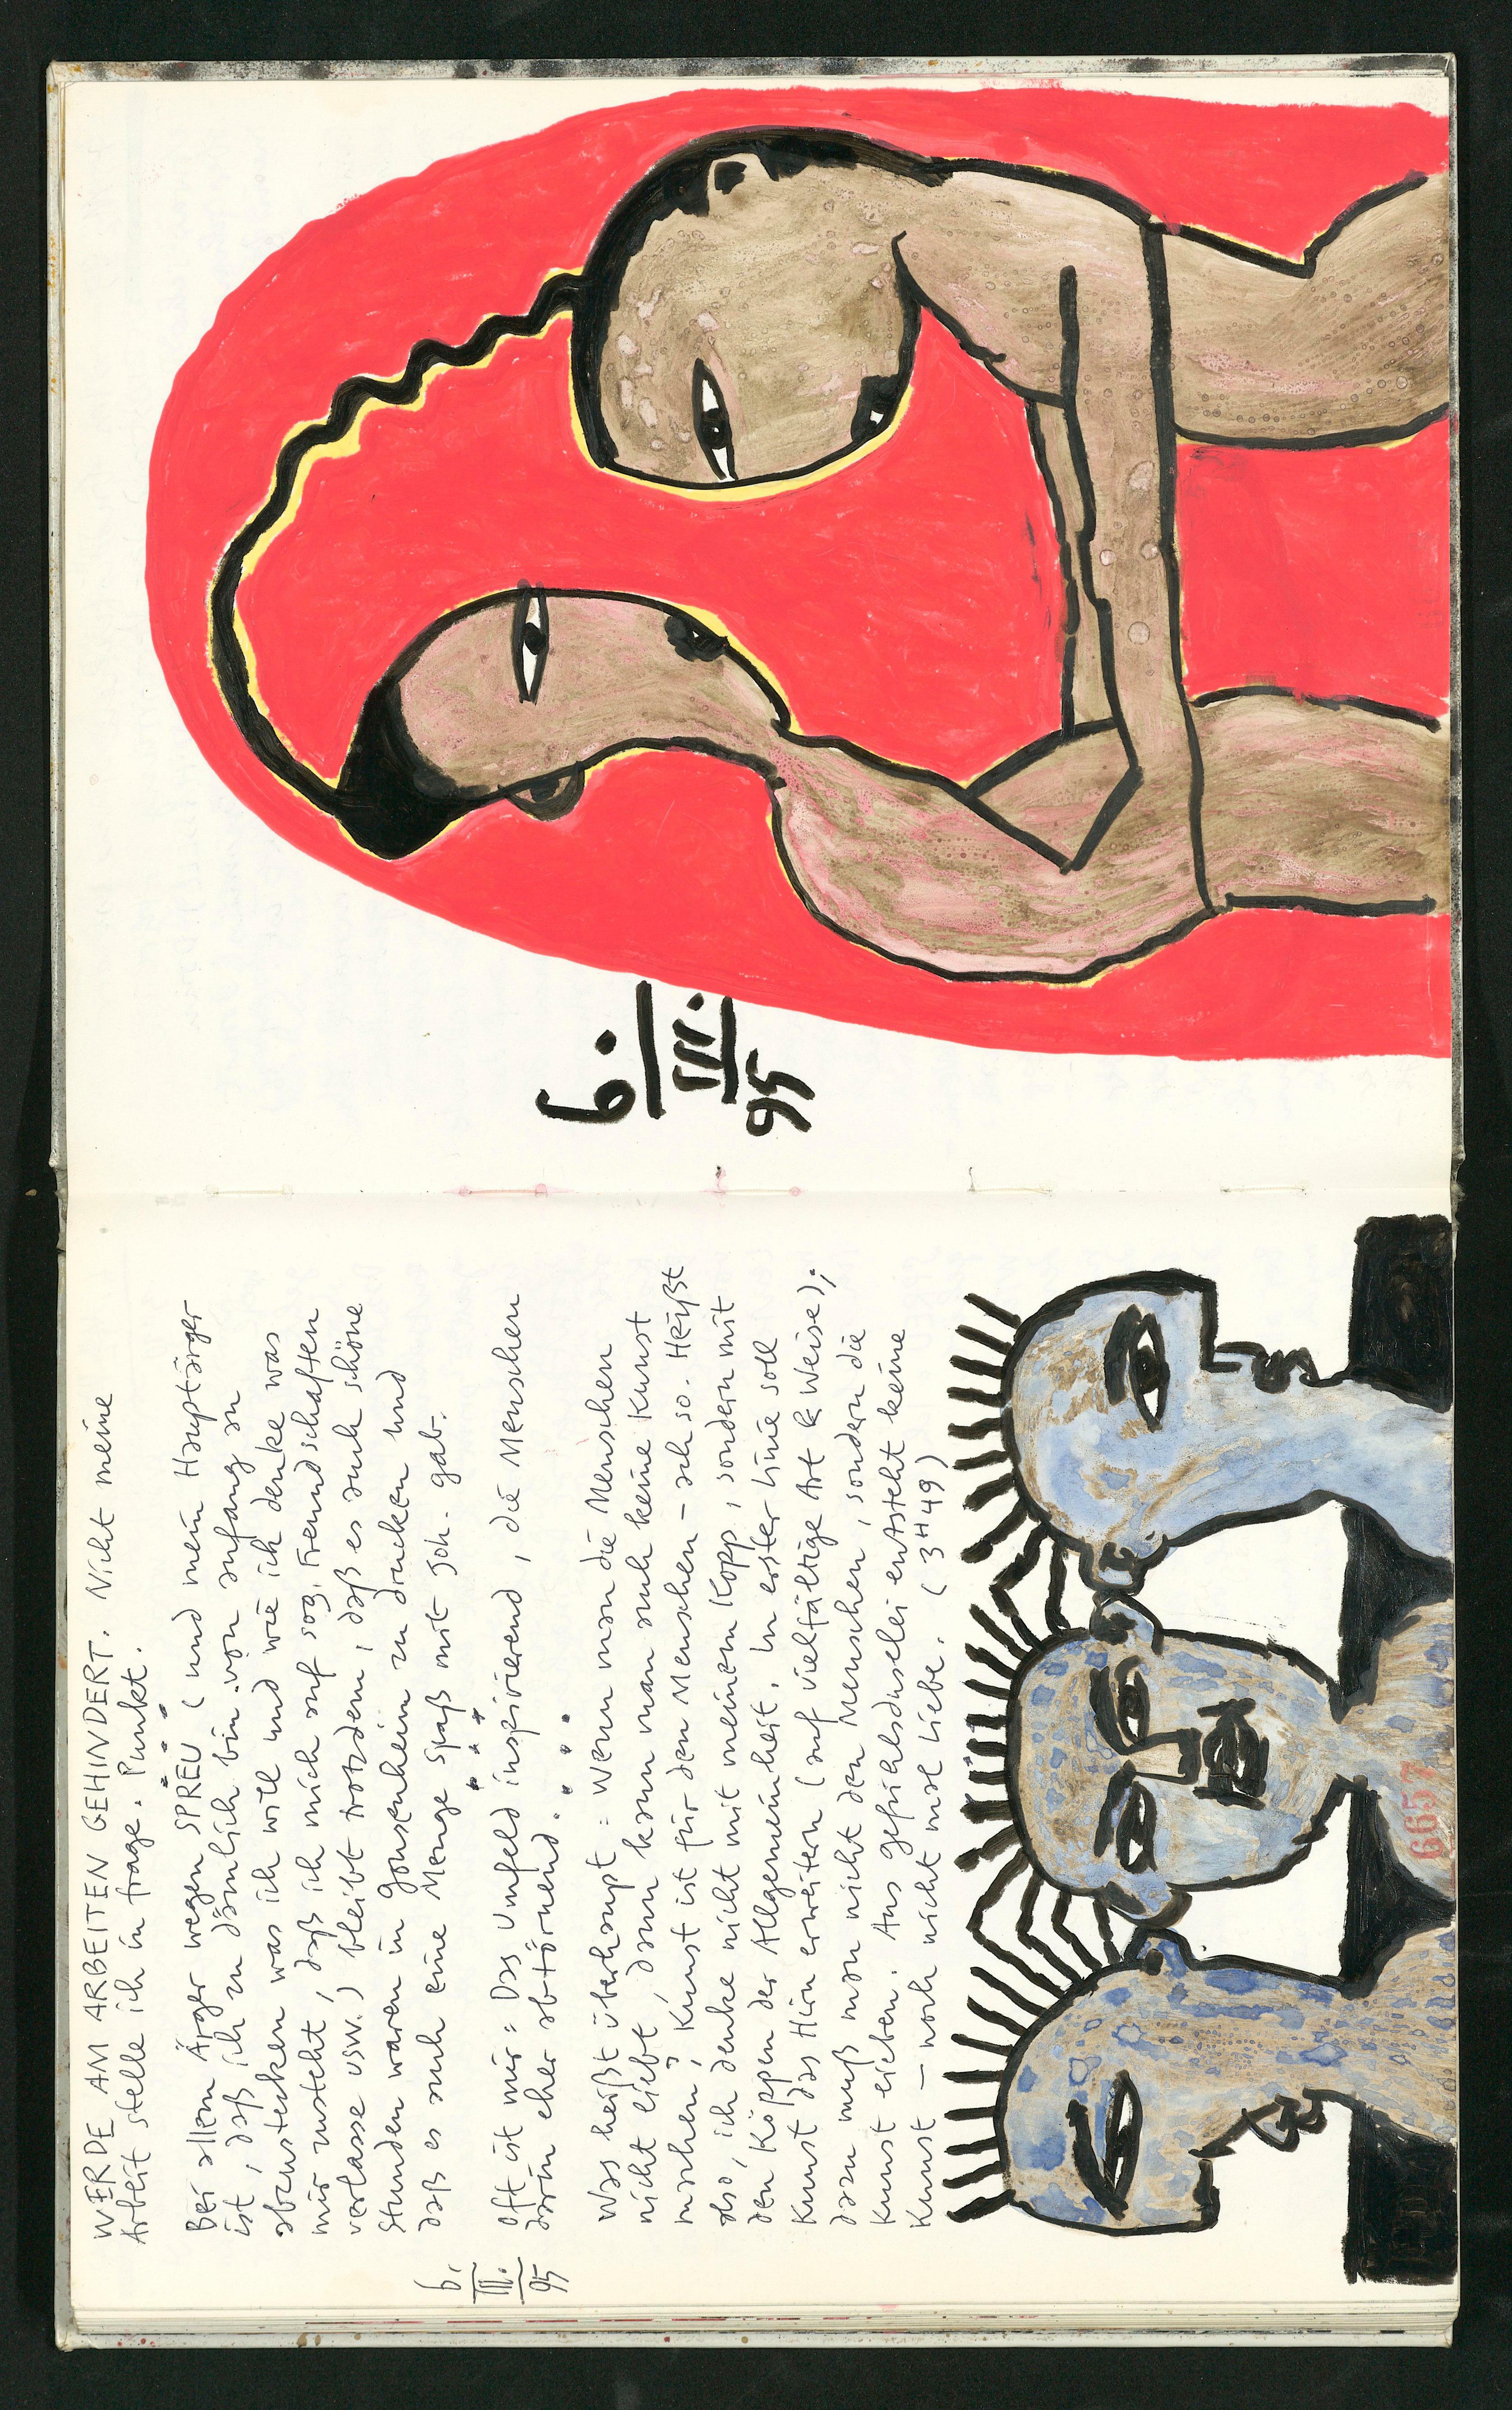 WERDE AM ARBEITEN GEHINDERT. Nicht meine
Arbeit stelle ich in frage. Punkt.
Bei allem Ärger wegen SPREU (und mein Hauptärger
ist, daß ich zu dämlich bin von anfang an
abzustecken was ich will und wie ich denke was
mir zusteht, daß ich mich auf sog. Freundschaften
verlasse usw.) bleibt trotzdem, daß es auch schöne
Stunden waren in Gonsenheim zu drucken und
daß es auch eine Menge Spaß mit Joh. gab.
6.
III.
95
Oft ist mir: Das Umfeld inspirierend, die Menschen
darin eher abtörnend.
Was heißt überhaupt: wenn man die Menschen
nicht liebt, dann kann man auch keine Kunst
machen; Kunst ist für den Menschen – ach so. Heißt
also, ich denke nicht mit meinem Kopp, sondern mit
den Köppen der Allgemeinheit. In erster Linie soll
Kunst das Hirn erweitern (auf vielfältige Art & Weise);
dazu muß man nicht den Menschen, sondern die
Kunst lieben. Aus gefühlsduselei entsteht keine
Kunst – noch nicht mal Liebe. (3H49)
6657
6.
III.
95